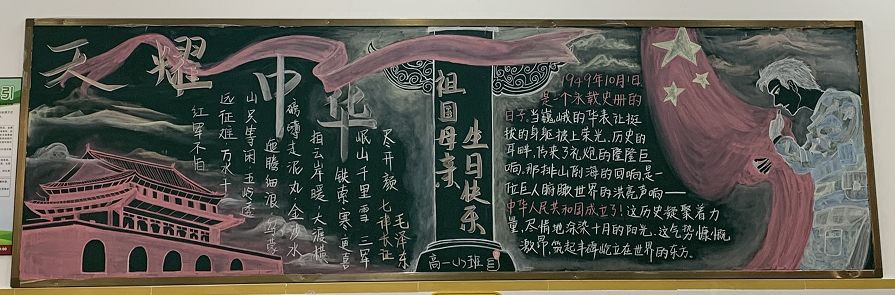 天耀中华
红军不怕
远征难 万水千
山只等闲 五岭逶
迤腾细浪 乌蒙
磅礴走泥丸 金沙水
拍云岸暖·大渡横
铁索·寒·更喜
岷山千里雪 三军
尽开颜 七律长征
毛泽东
祖国母亲
生日快乐
高一 班
1949年10月1日,
是一个永载史册的
日子。当巍峨的华表让挺
拔的身躯披上荣光,历史的
耳畔,传来了礼炮的隆隆巨
响,那排山倒海的回响是一
位巨人俯瞰世界的洪亮声响——
中华人民共和国成立引!这历史凝聚着力
量,尽情地涂染十月的阳光,这气势慷慨
激昂,筑起丰碑屹立在世界的东方。
引